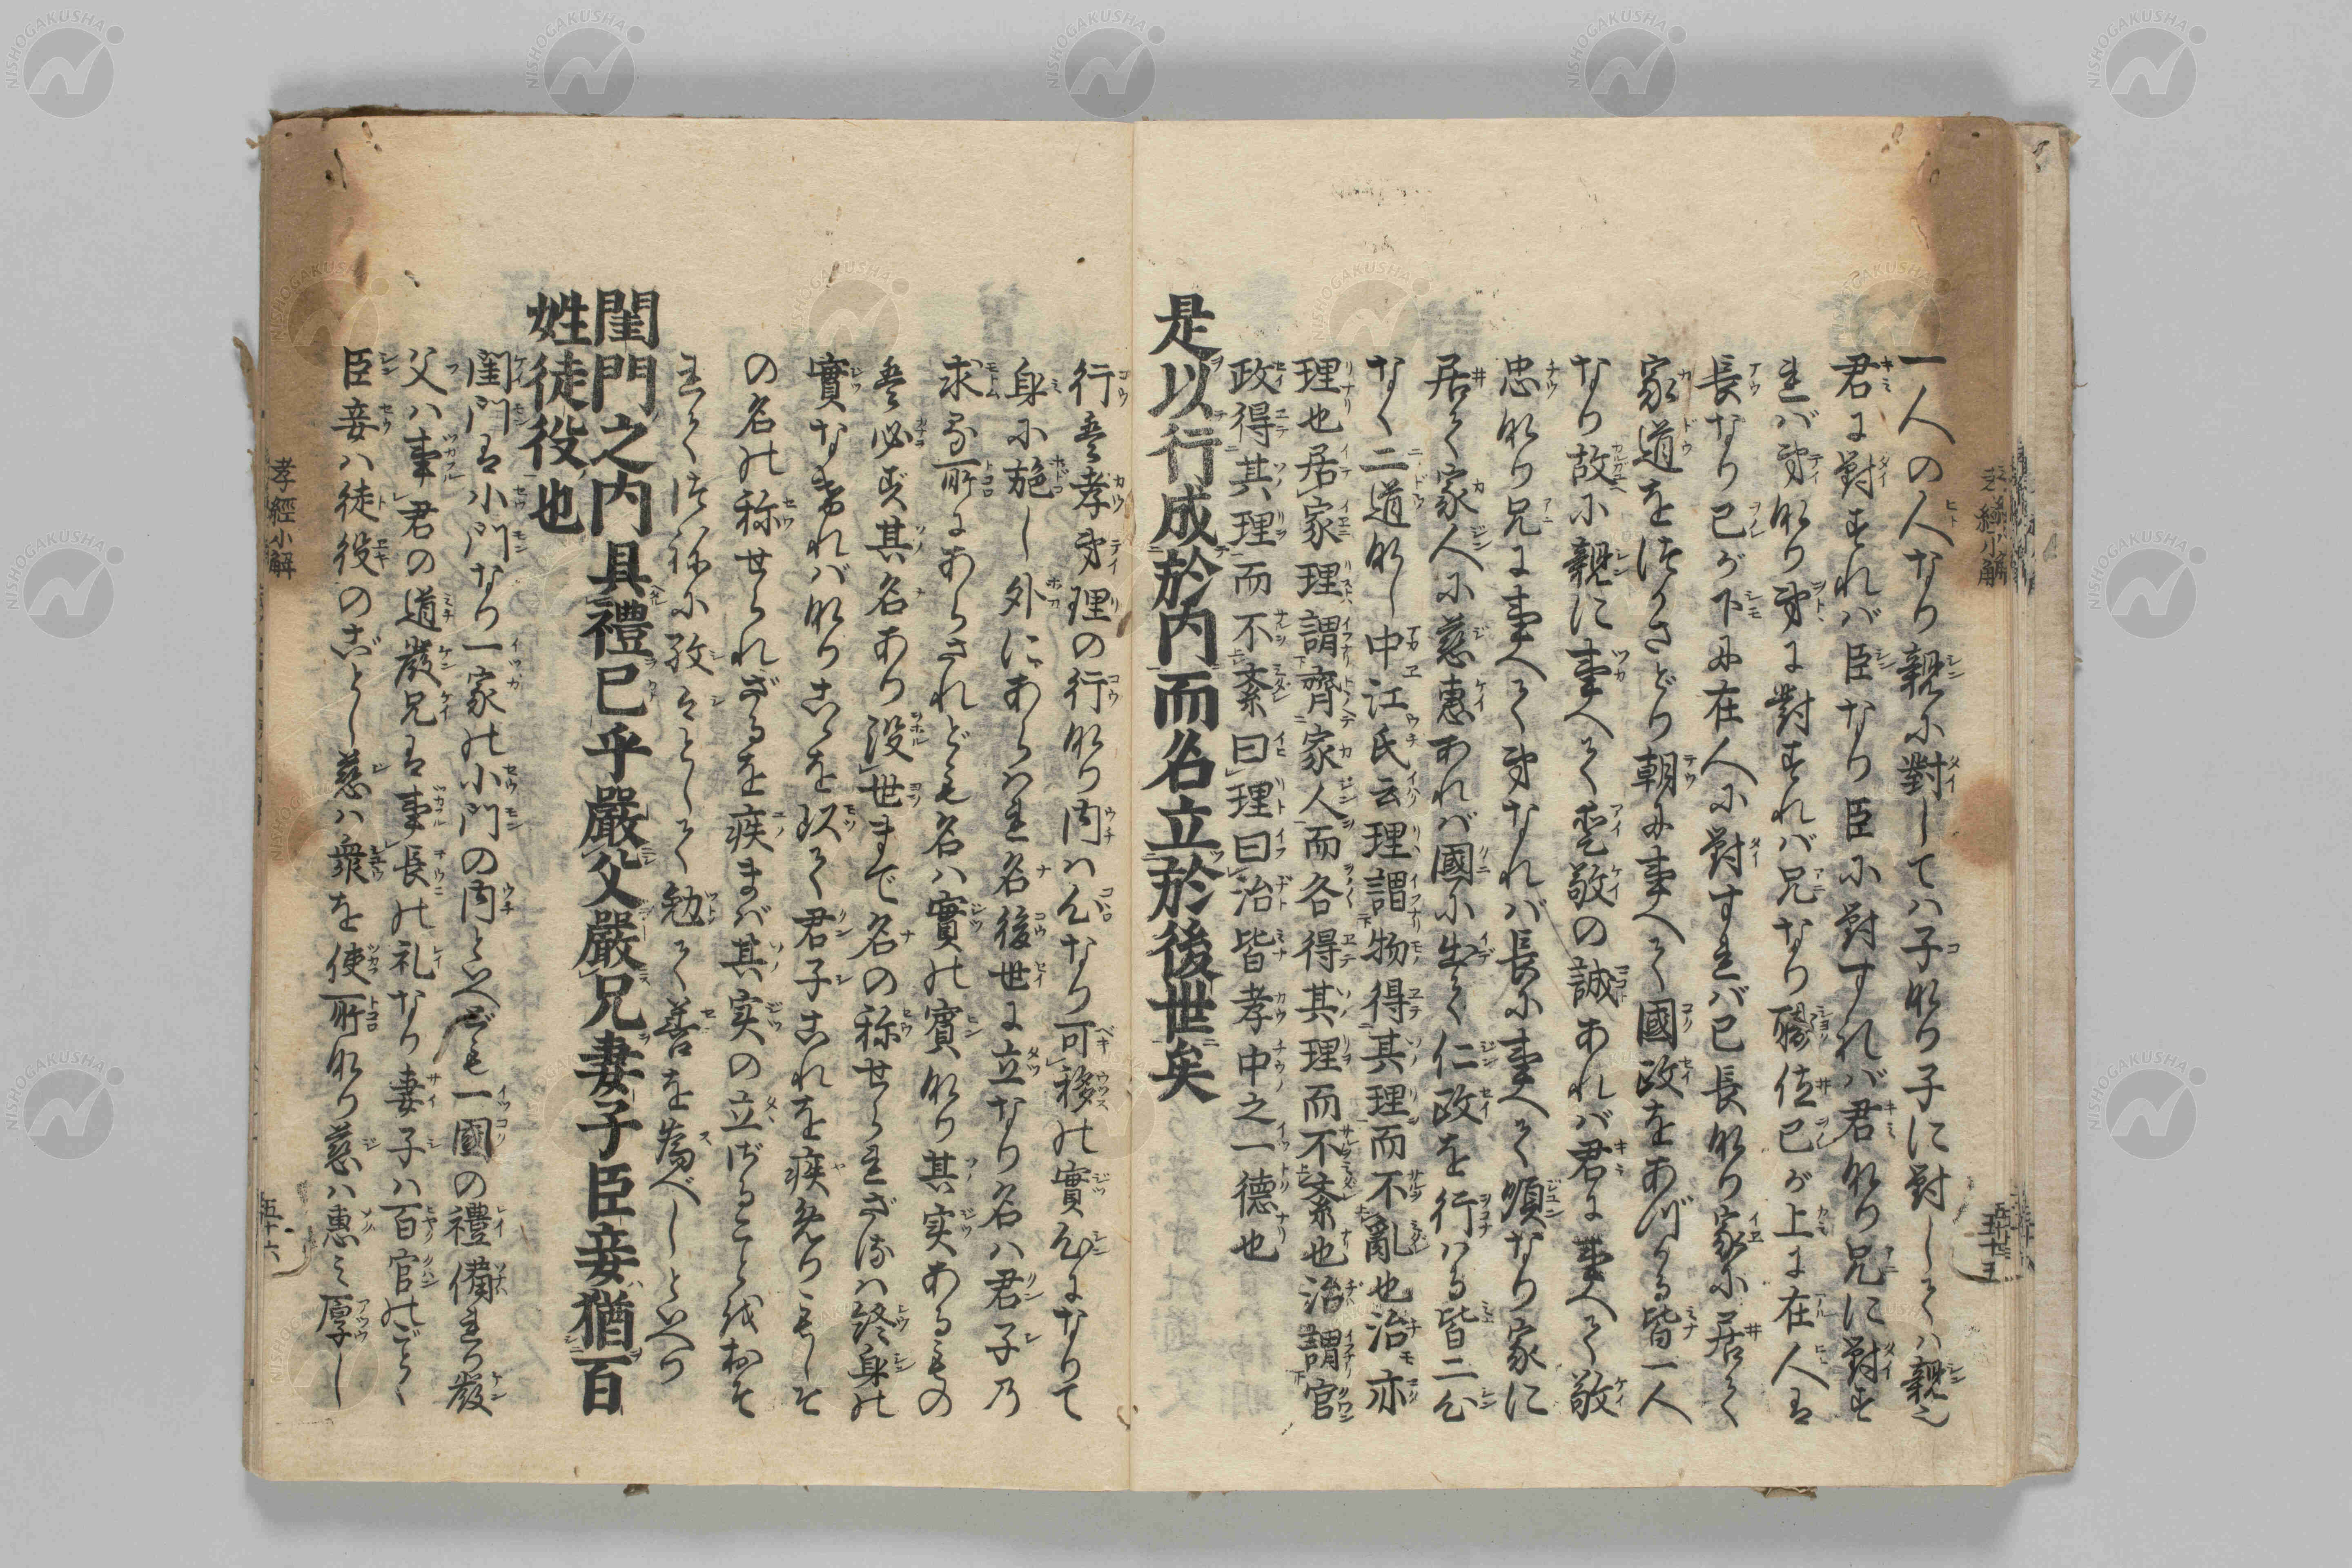 一人の人なり親に對しては子なり子に對しては親也
君に對すれば臣なり臣に對すれば君なり兄に對す
れば弟なり弟に對すれば兄なり勝位己が上に在人は
長なり己が下に在人に對すれば己長なり家に居て
家道をつかさどり朝に事へて國政をあづかる皆一人
なり故に親に事へて愛敬の誠あれば君に事へて敬
忠なり兄に事へて弟なれば長に事へて順なり家に
居て家人に慈惠あれば國に出て仁政を行はる皆二心
なく二道なし中江氏云理謂物得其理而不亂也治亦
理也居家理謂齊家人而各得其理而不紊也治謂官
政得其理而不紊曰理曰治皆孝中之一德也
是以行成於內而名立於後世矣
行は孝弟理の行なり内は心なり可移の實心になりて
身に施し外にあらはれ名後世に立なり名は君子乃
求る所にあらされども名は實の賓なり其実あるもの
は必ず其名あり没世まで名の称せられざるは終身の
實なければなりこゝを以て君子これを疾めりもし其
の名の称せられざるを疾まば其実の立ざることをおそ
れてつねに孜々として勉て善を為べしといへり
閨門之內具禮已乎嚴父嚴兄妻子臣妾猶百
姓徒役也
閨門は小門なり一家の小門の内といへども一國の禮備れり嚴
父は事君の道嚴兄は事長の礼なり妻子は百官のごとく
臣妾は徒役のごとし慈は衆を使所なり慈は惠み厚し
孝經小解
五十六
五十五
NISHOGAKUSHA